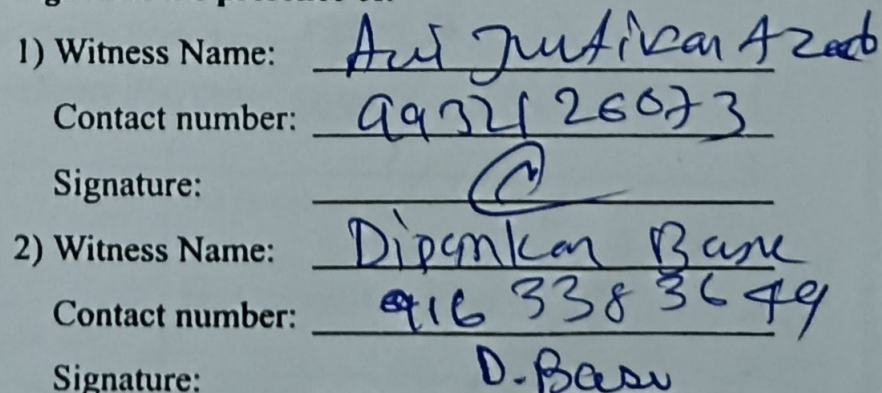 1) Witness Name: Azad
Contact number: 9932126073
Signature:
2) Witness Name: Dipankar Basu
Contact number: 9163383649
Signature: D. Basu